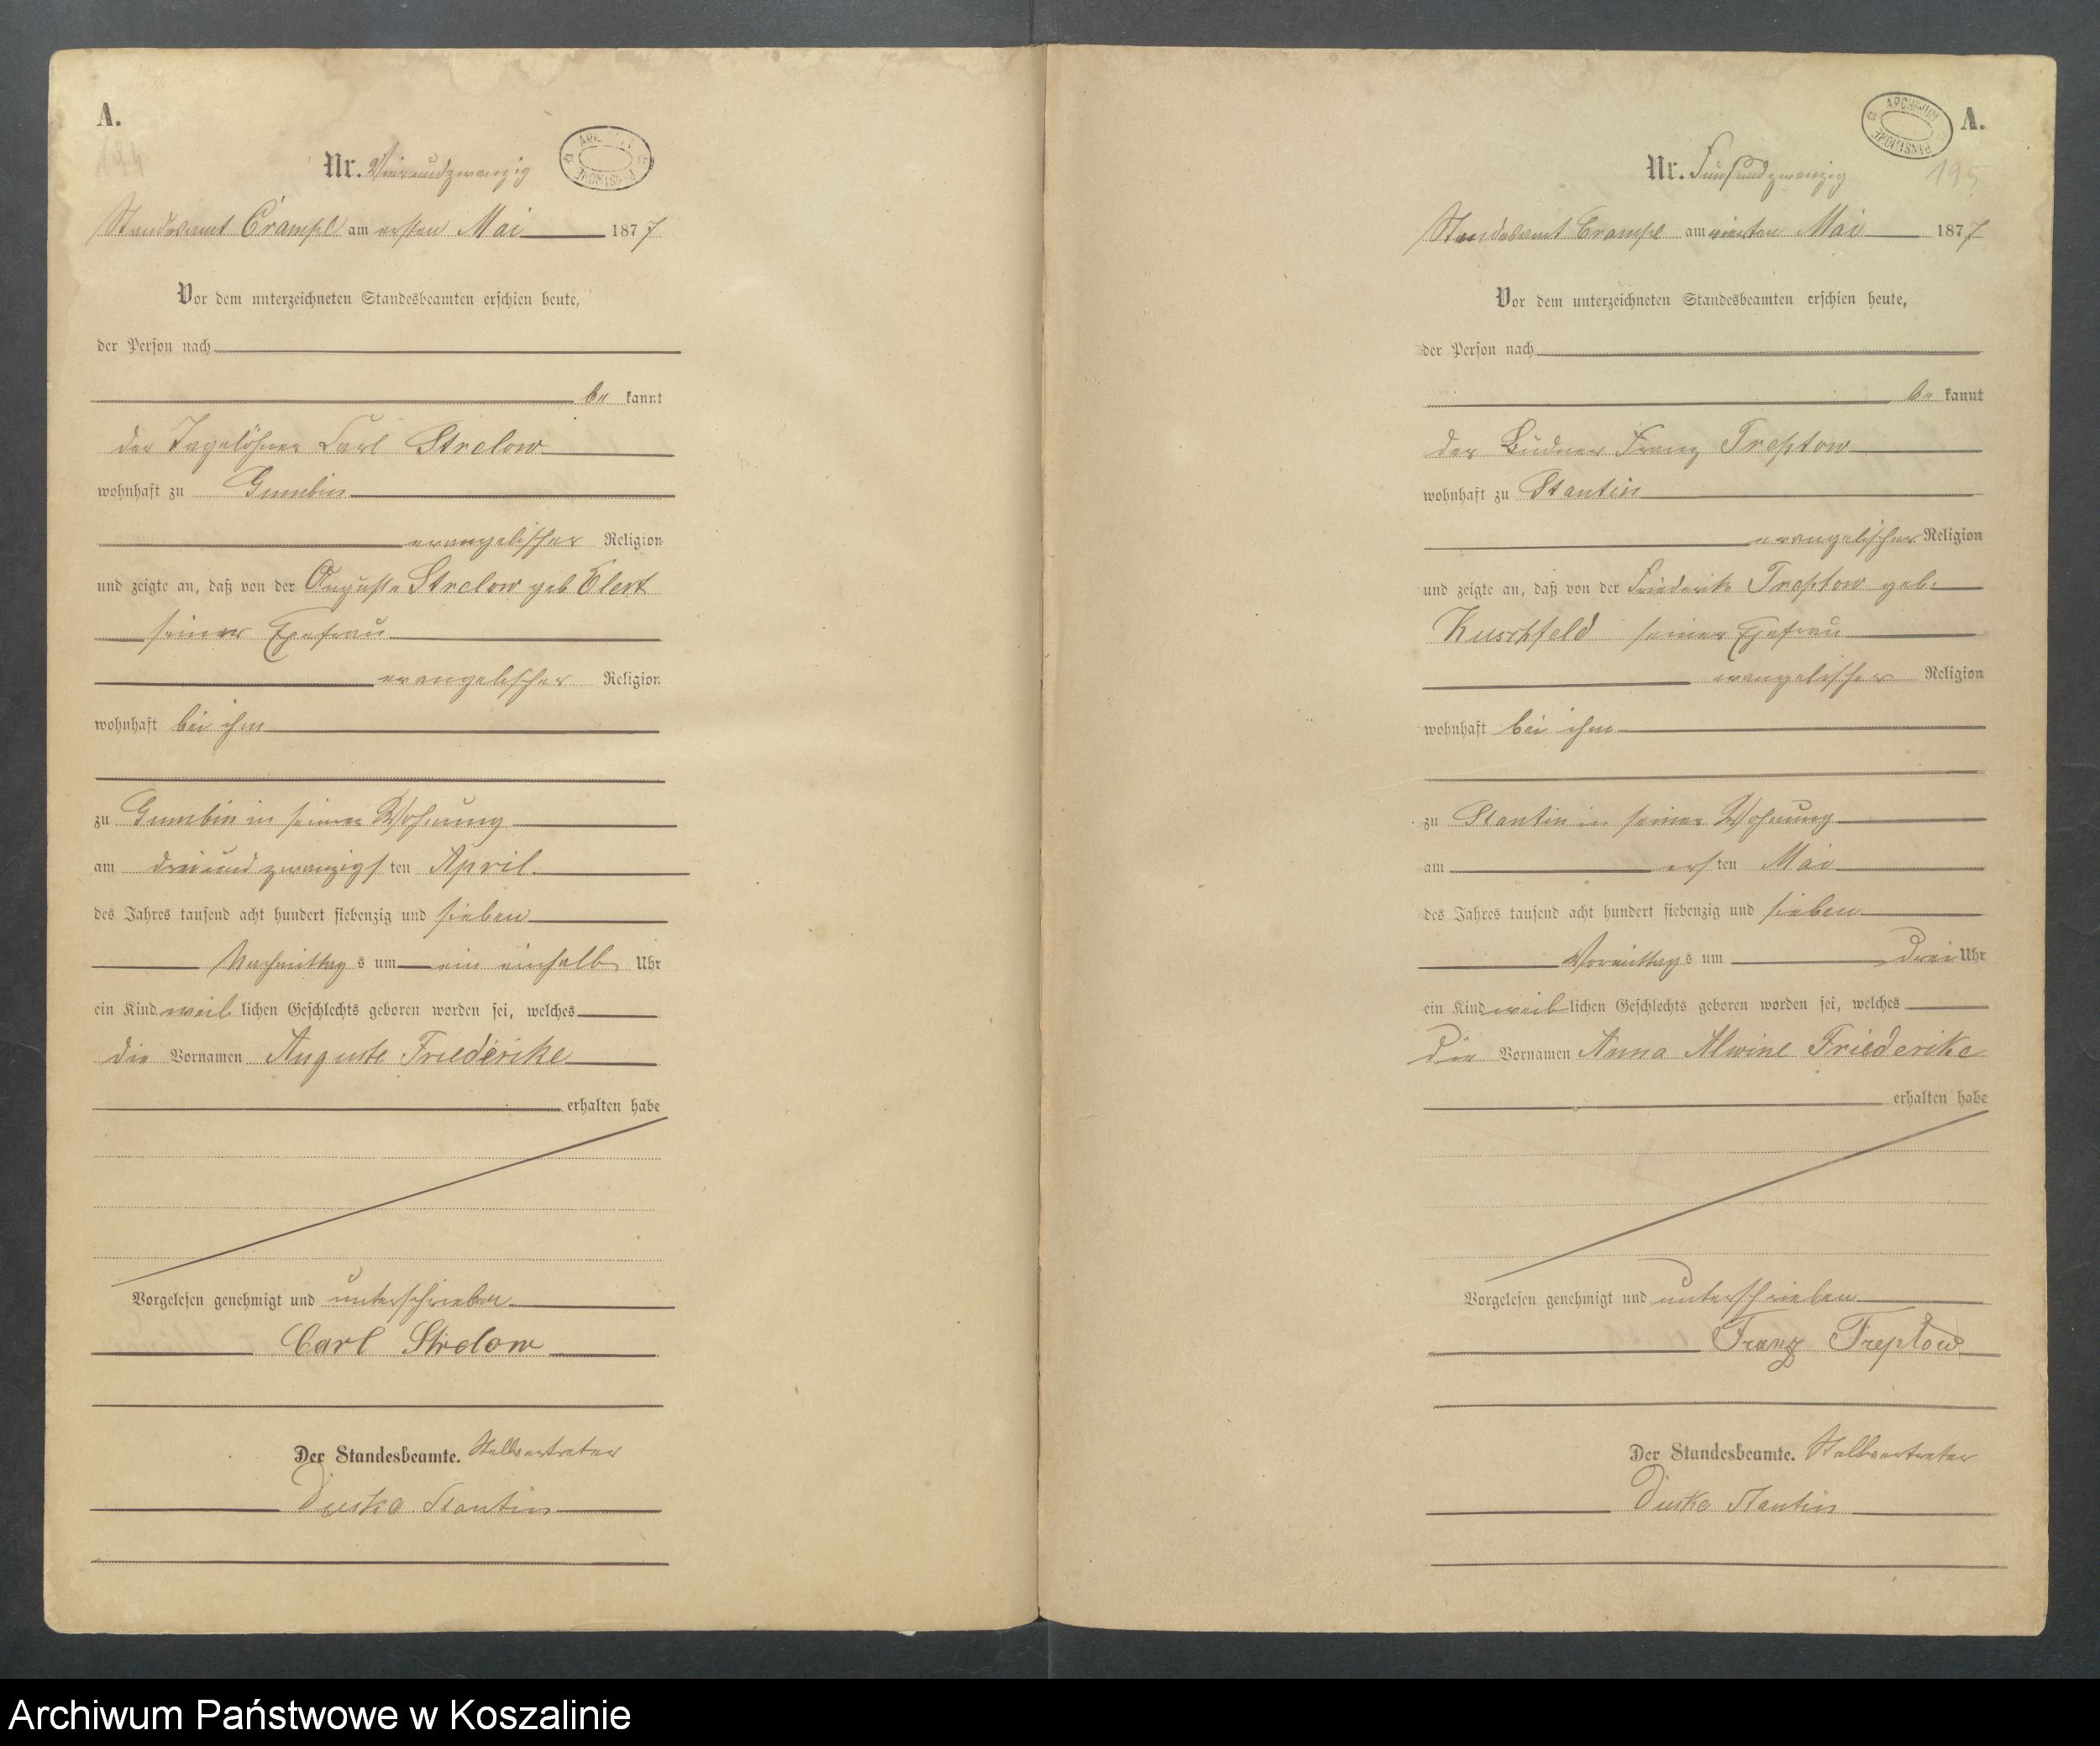 A.
194
Nr. Vierundzwanzig
Standesamt Crampe am ersten Mai 1877
Vor dem unterzeichneten Standesbeamten erschien heute,
der Person nach
be kannt
der Tagelöhner Carl Strelow
wohnhaft zu Gumbin
evangelischer Religion
und zeigte an, daß von der Auguste Strelow geb Elert
seiner Ehefrau
evangelischer Religion
wohnhaft bei ihm
zu Gumbin in seiner Wohnung
am dreiundzwanzigsten April
des Jahres tausend acht hundert siebenzig und sieben
Nachmittags um ein einhalb Uhr
ein Kind weiblichen Geschlechts geboren worden sei, welches
die Vornamen Auguste Friederike
erhalten habe
Vorgelesen genehmigt und unterschrieben
Carl Strelow
Der Standesbeamte. Stellvertreter
Duske Stantin
ARCHIWUM
A.
195
Nr. Fünfundzwanzig
Standesamt Crampe am vierten Mai 1877
Vor dem unterzeichneten Standesbeamten erschien heute,
der Person nach
be kannt
der Büdner Franz Treptow
wohnhaft zu Stantin
evangelischer Religion
und zeigte an, daß von der Friederike Treptow geb:
Kuschfeld seiner Ehefrau
evangelischer Religion
wohnhaft bei ihm
zu Stantin in seiner Wohnung
am ersten Mai
des Jahres tausend acht hundert siebenzig und sieben
Vormittags um drei Uhr
ein Kind weiblichen Geschlechts geboren worden sei, welches
die Vornamen Anna Alwine Friederike
erhalten habe
Vorgelesen genehmigt und unterschrieben
Franz Treptow
Der Standesbeamte. Stellvertreter
Duske Stantin
Archiwum Państwowe w Koszalinie